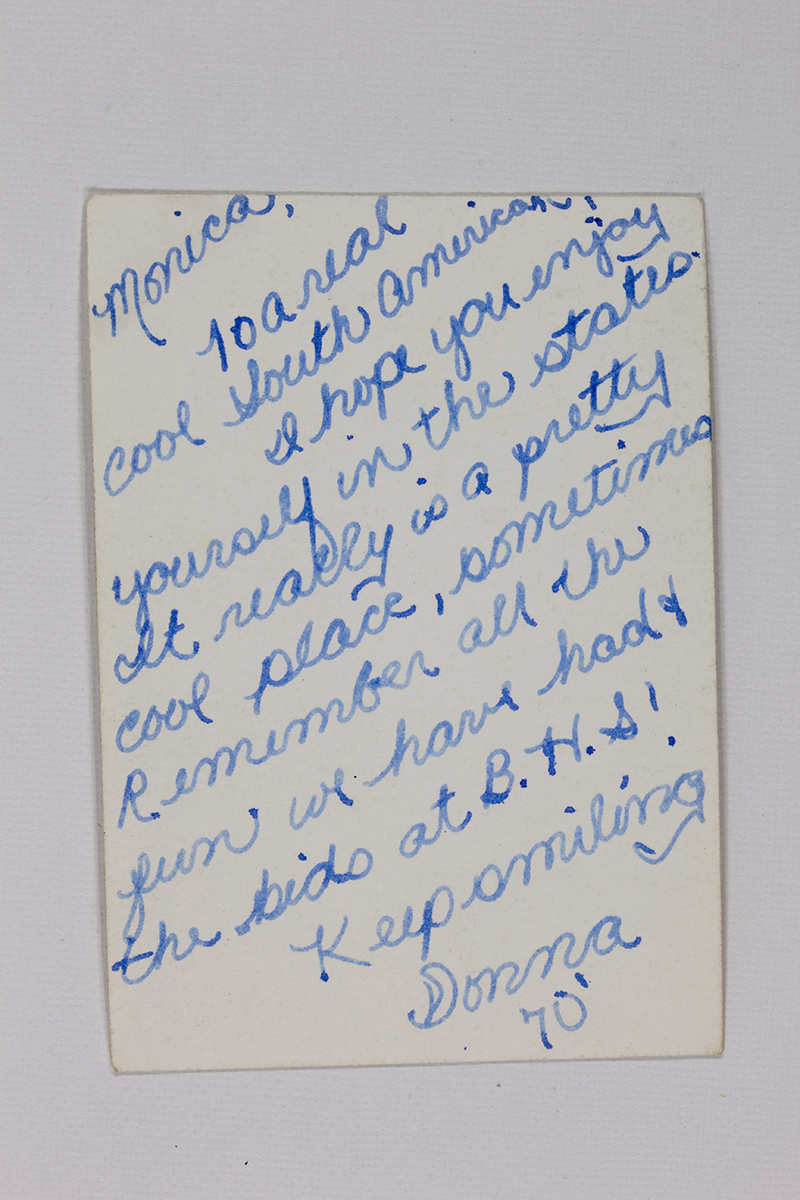 Monica,
To a real
cool South American!
I hope you enjoy
yourself in the states.
It really is a pretty
cool place, sometimes
Remember all the
fun we have had &
the kids at B.H.S!
Keep smiling
Donna
70'